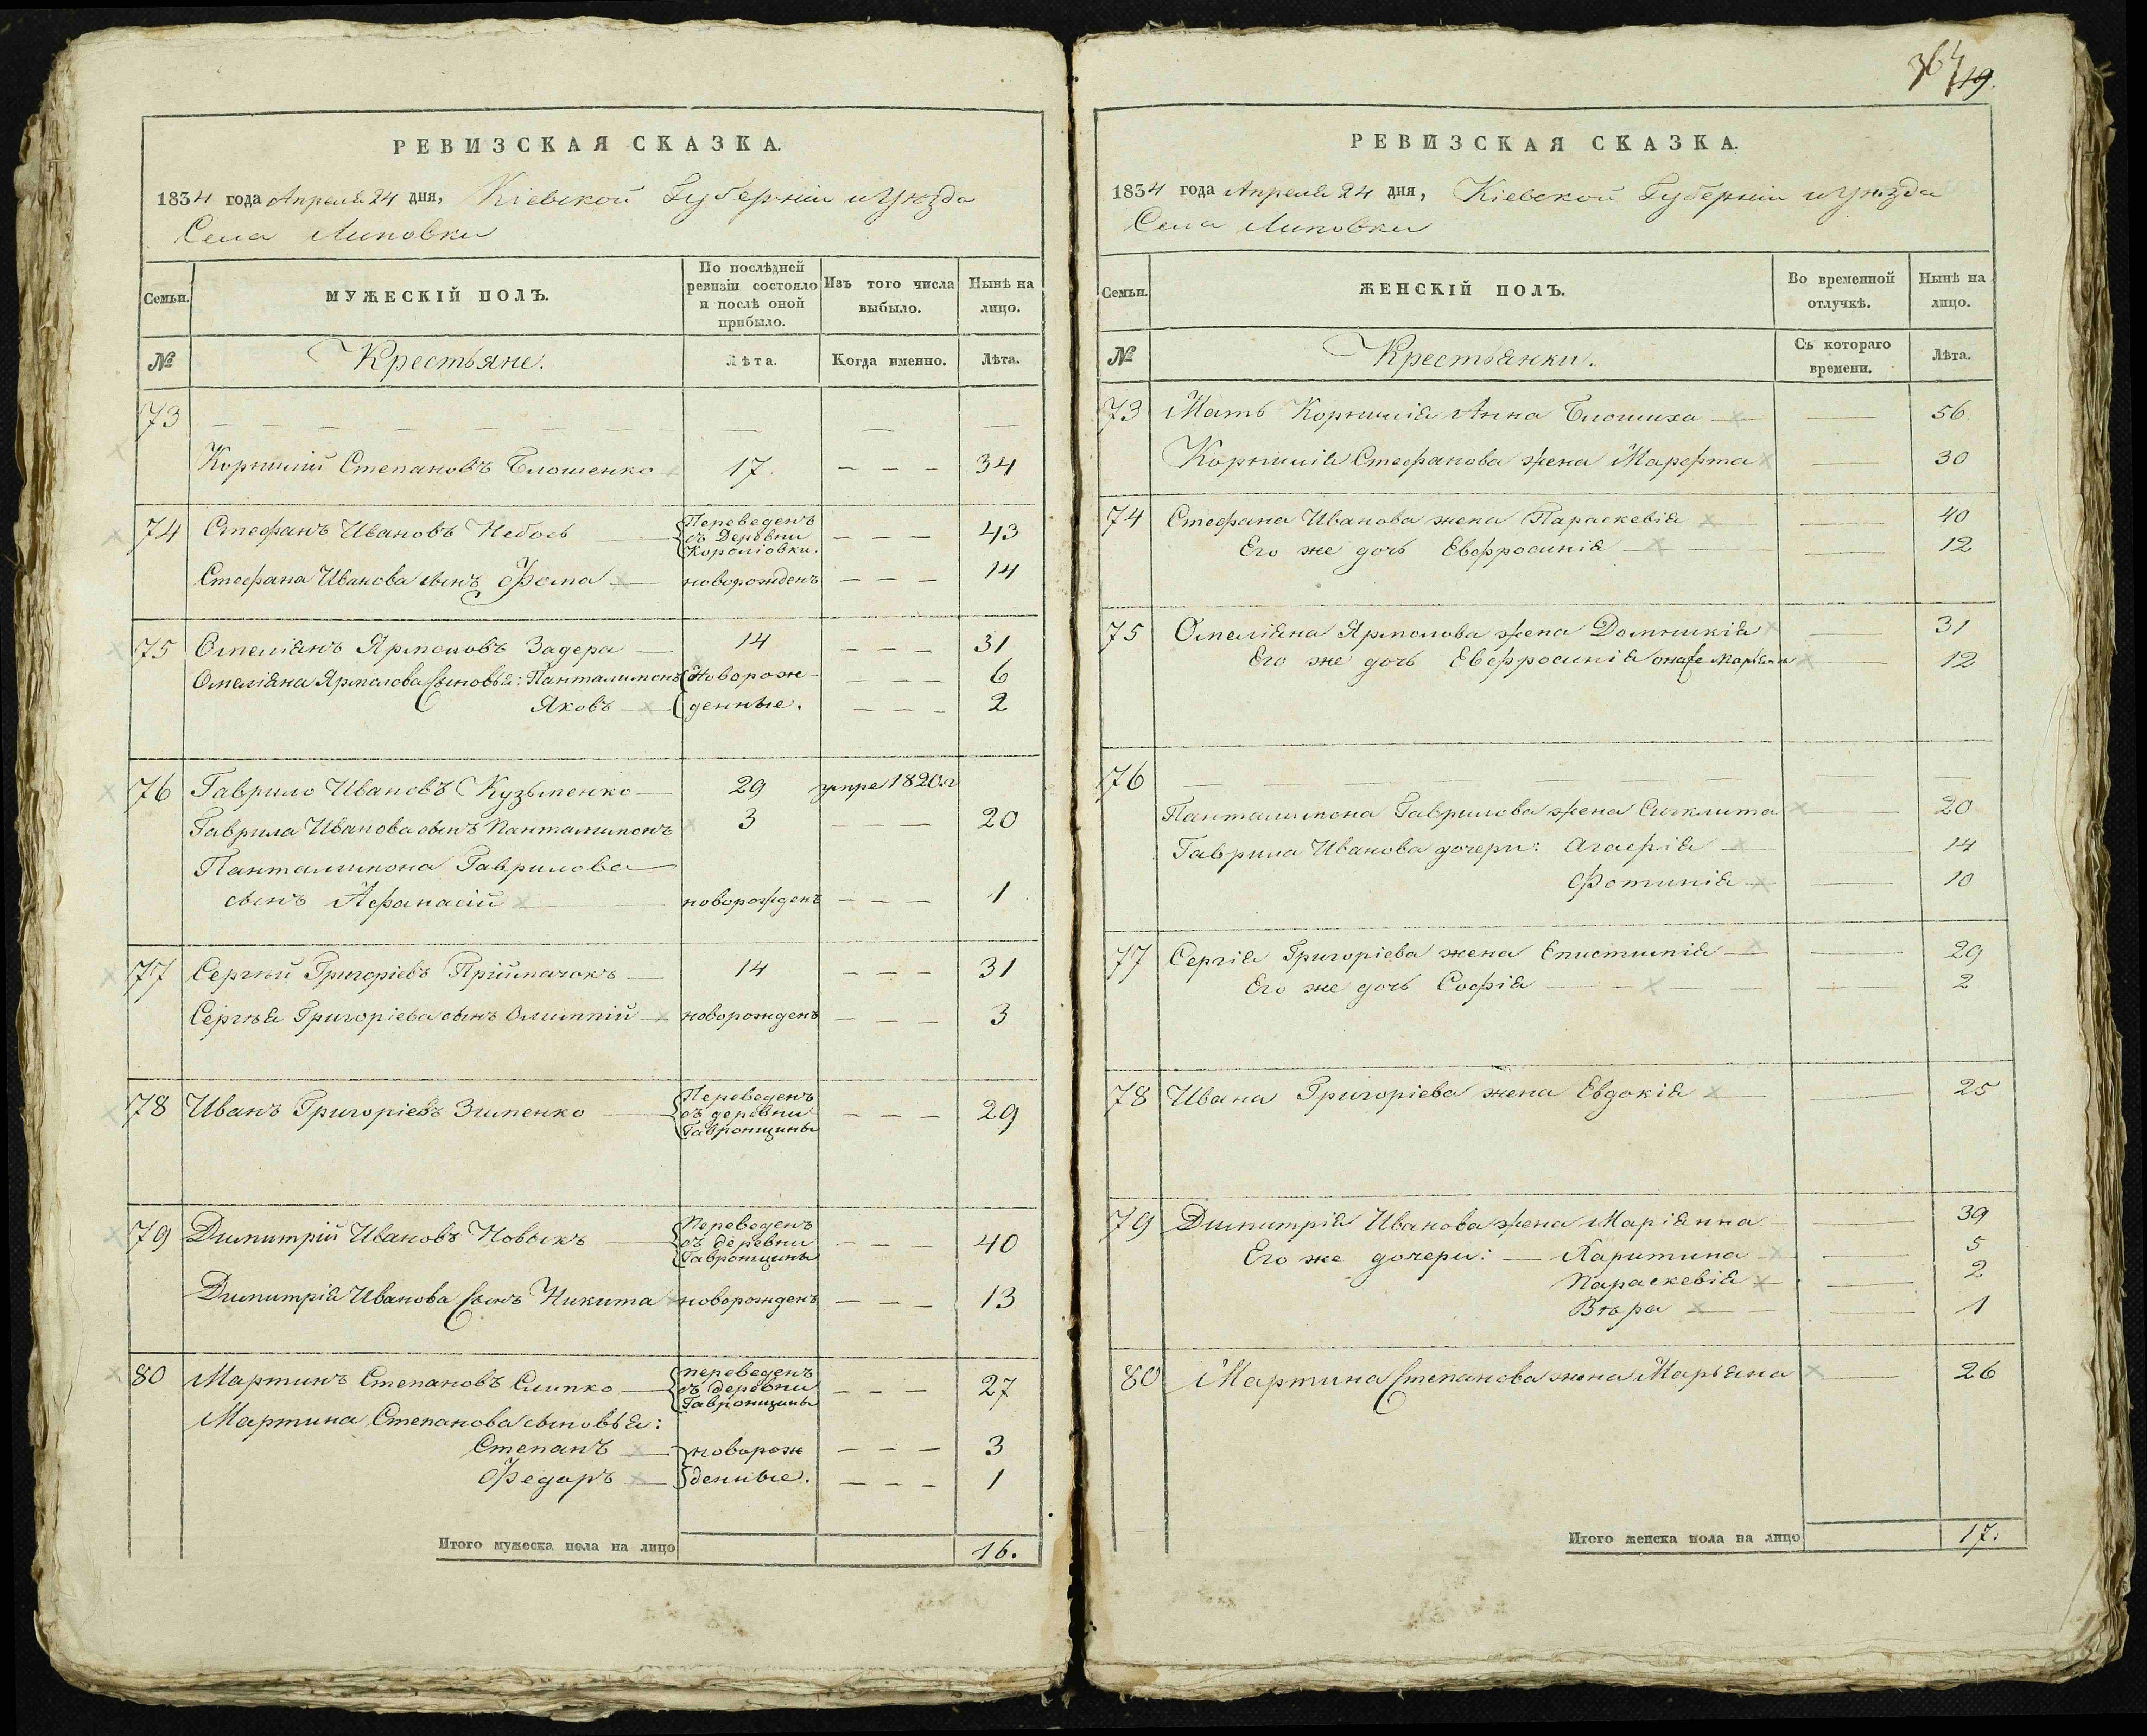 РЕВИЗСКАЯ СКАЗКА.
1834 года Апреля 24 дня, Кіевской Губерніи и Уѣзда
Села Липовки
Семьи.
МУЖЕСКІЙ ПОЛЪ.
По послѣдней
ревизіи состояло
и послѣ оной
прибыло.
Изъ того числа
выбыло.
Нынѣ на
лицо.
№
Крестьяне.
Лѣта.
Когда именно.
Лѣта.
73
Корнилій Степановъ Блошенко 17. 34
74 Стефанъ Ивановъ Небось
Переведенъ
съ Деревни
Королiовки.
43
Стефана Иванова сынъ Фома новорожденъ 14
75 Омеліянъ Ярмоловъ Задера 14 31
Омеліяна Ярмолова сыновья: Панталимонъ Новорож 6
Яковъ денные. 2
76 Гаврило Ивановъ Кузьменко 29 умре 1820 г
Гаврила Иванова сынъ Панталимонъ 3 20
Панталимона Гаврилова
сынъ Афанасій новорожденъ 1
77 Сергѣй Григоріевъ Пріймачокъ 14 31
Сергѣя Григоріева сынъ Олимпій новорожденъ 3
78 Иванъ Григоріевъ Зименко
Переведенъ
съ деревни
Гавронщины
29
79 Димитрій Ивановъ Новыкъ
Переведенъ
съ деревни
Гавронщины
40
Димитрія Иванова сынъ Никита новорожденъ 13
80 Мартинъ Степановъ Слипко
переведенъ
съ деревни
Гавронщины
27
Мартина Степанова сыновья:
Степанъ новорож 3
Федаръ денные. 1
Итого мужеска пола на лицо 16.
19.
РЕВИЗСКАЯ СКАЗКА.
1834 года Апреля 24 дня, Кіевской Губерніи и Уѣзда
Села Липовки
Семьи.
ЖЕНСКІЙ ПОЛЪ.
Во временной
отлучкѣ.
Нынѣ на
лицо.
№
Крестьянки.
Съ котораго
времени.
Лѣта.
73 Мать Корнилія Анна Блошиха 56.
Корнилія Стефанова жена Марфта 30
74 Стефана Иванова жена Параскевія 40
Его же дочь Евфросинія 12
75 Омеліяна Ярмолова жена Домникія 31
Его же дочь Евефросинія она же Марьяна 12
76
Панталимона Гаврилова жена Сиклита 20
Гаврила Иванова дочери: Агафія 14
Фотинія 10
77 Сергія Григоріева жена Епистимія 29
Его же дочь Софія 2
78 Ивана Григоріева жена Евдокія 25
79 Димитрія Иванова жена Маріянна 39
Его же дочери: Харитина 5
Параскевія 2
Вѣра 1
80 Мартина Степанова жена Марьяна 26
Итого женска пола на лицо 17.